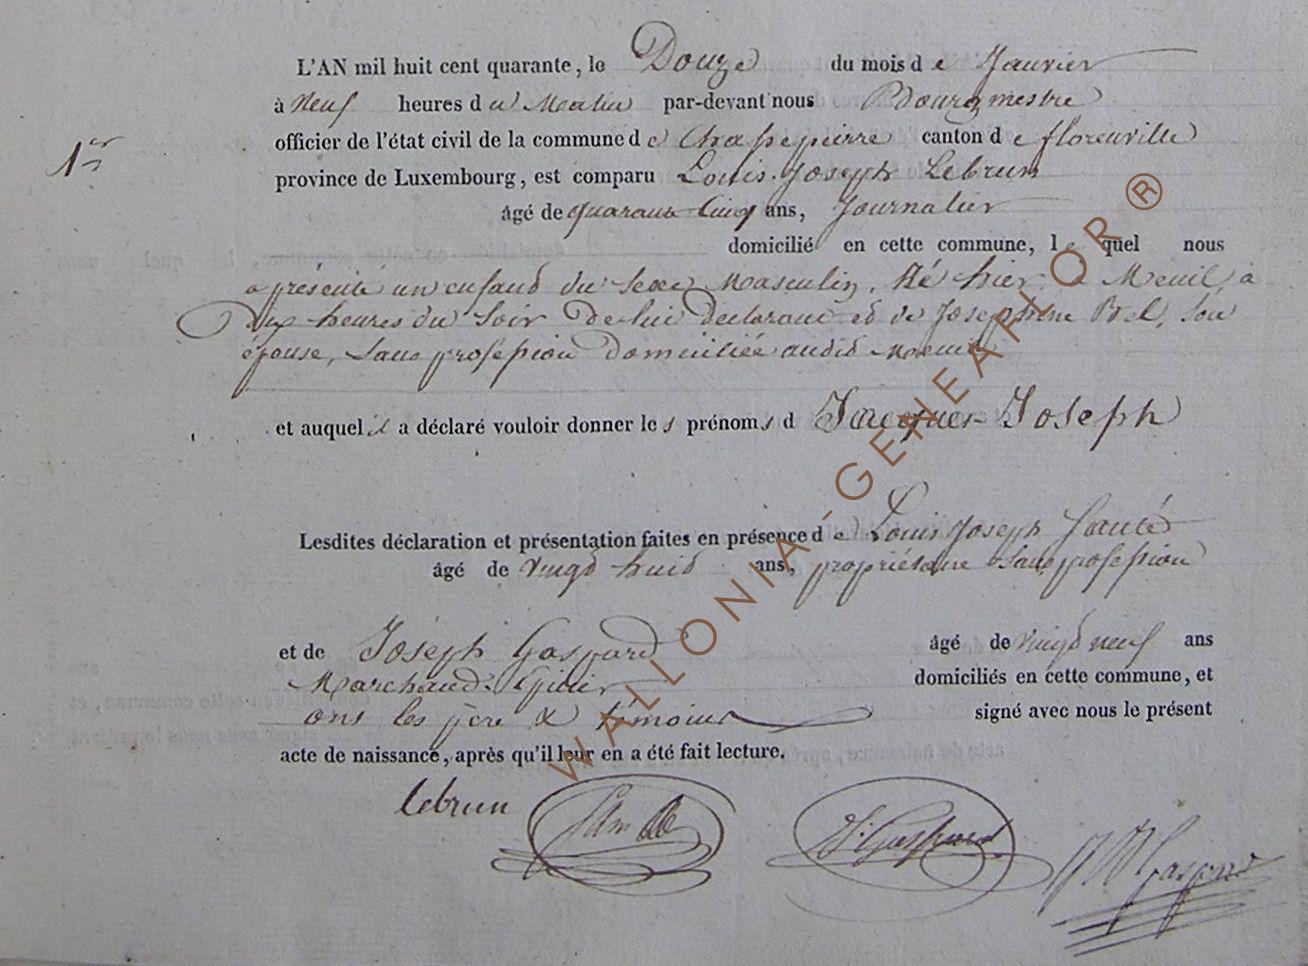 L'AN mil huit cent quarante, le Douze du mois de Janvier
à Neuf heures du Matin par-devant nous Bourgmestre
officier de l'état civil de la commune de Chassepierre canton de florenville
1er
province de Luxembourg, est comparu Louis Joseph Lebrun
âgé de quarante Cinq ans, Journalier
domicilié en cette commune, lequel nous
a présenté un enfand du Sexe Masculin, Né hier à Menil à
Dix heures du Soir De lui declarant et de Josephine Bel, Son
épouse, Sans profession Domiciliée audid Menil
et auquel il a déclaré vouloir donner les prénoms d Jacques Joseph
Lesdites déclaration et présentation faites en présence de Louis Joseph
âgé de vingd huid ans, propriétaire Sans profession
et de Joseph Gaspard âgé de vingd neuf ans
Marchand Epicier domiciliés en cette commune, et
ont les père & témoins signé avec nous le présent
acte de naissance, après qu'il leur en a été fait lecture.
lebrun Gaspard Gaspard
WALLONIA-GENEAFLOR ®